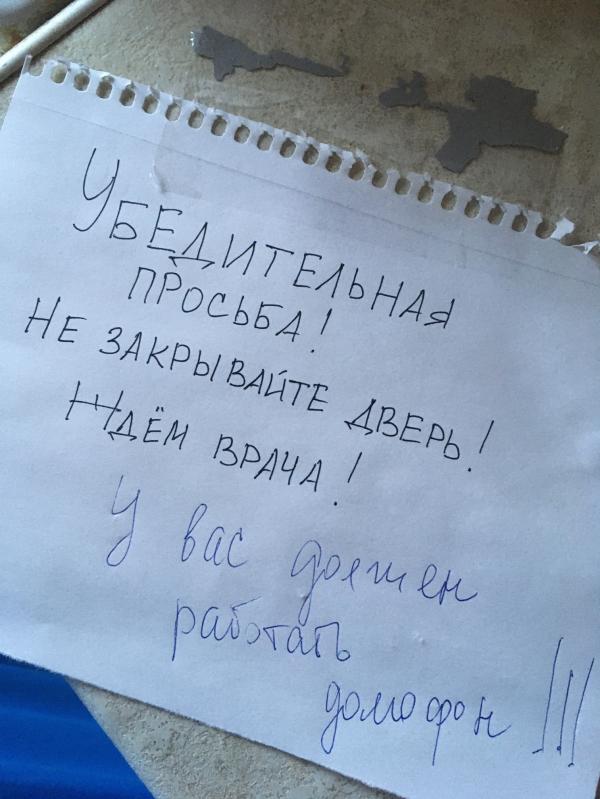 УБЕДИТЕЛЬНАЯ
ПРОСЬБА!
НЕ ЗАКРЫВАЙТЕ ДВЕРЬ!
ЖДЁМ ВРАЧА!
У вас должен
работать
домофон !!!